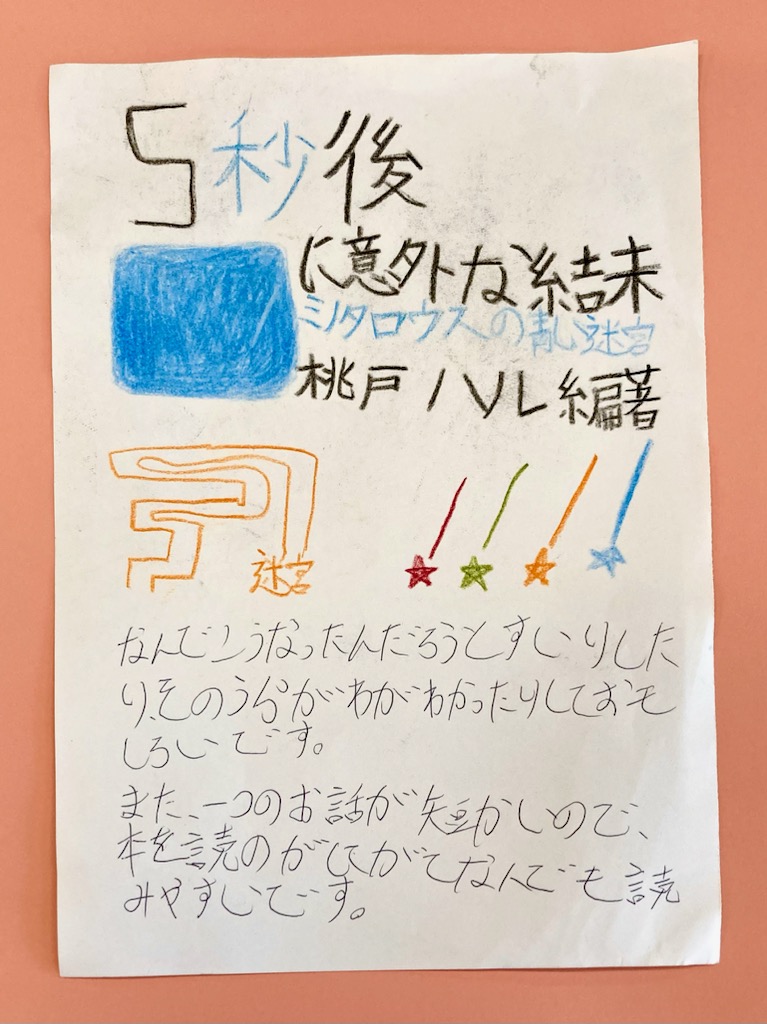 5秒後
に意外な結末
ミノタロウスの青い迷宮
桃戸ハル編著
迷宮
なんでこうなったんだろうとすいりした
り、そのうらがわがわかったりしておも
しろいです。
また、一つのお話が短かいので、
本を読のがひがてなんでも読
みやすいです。